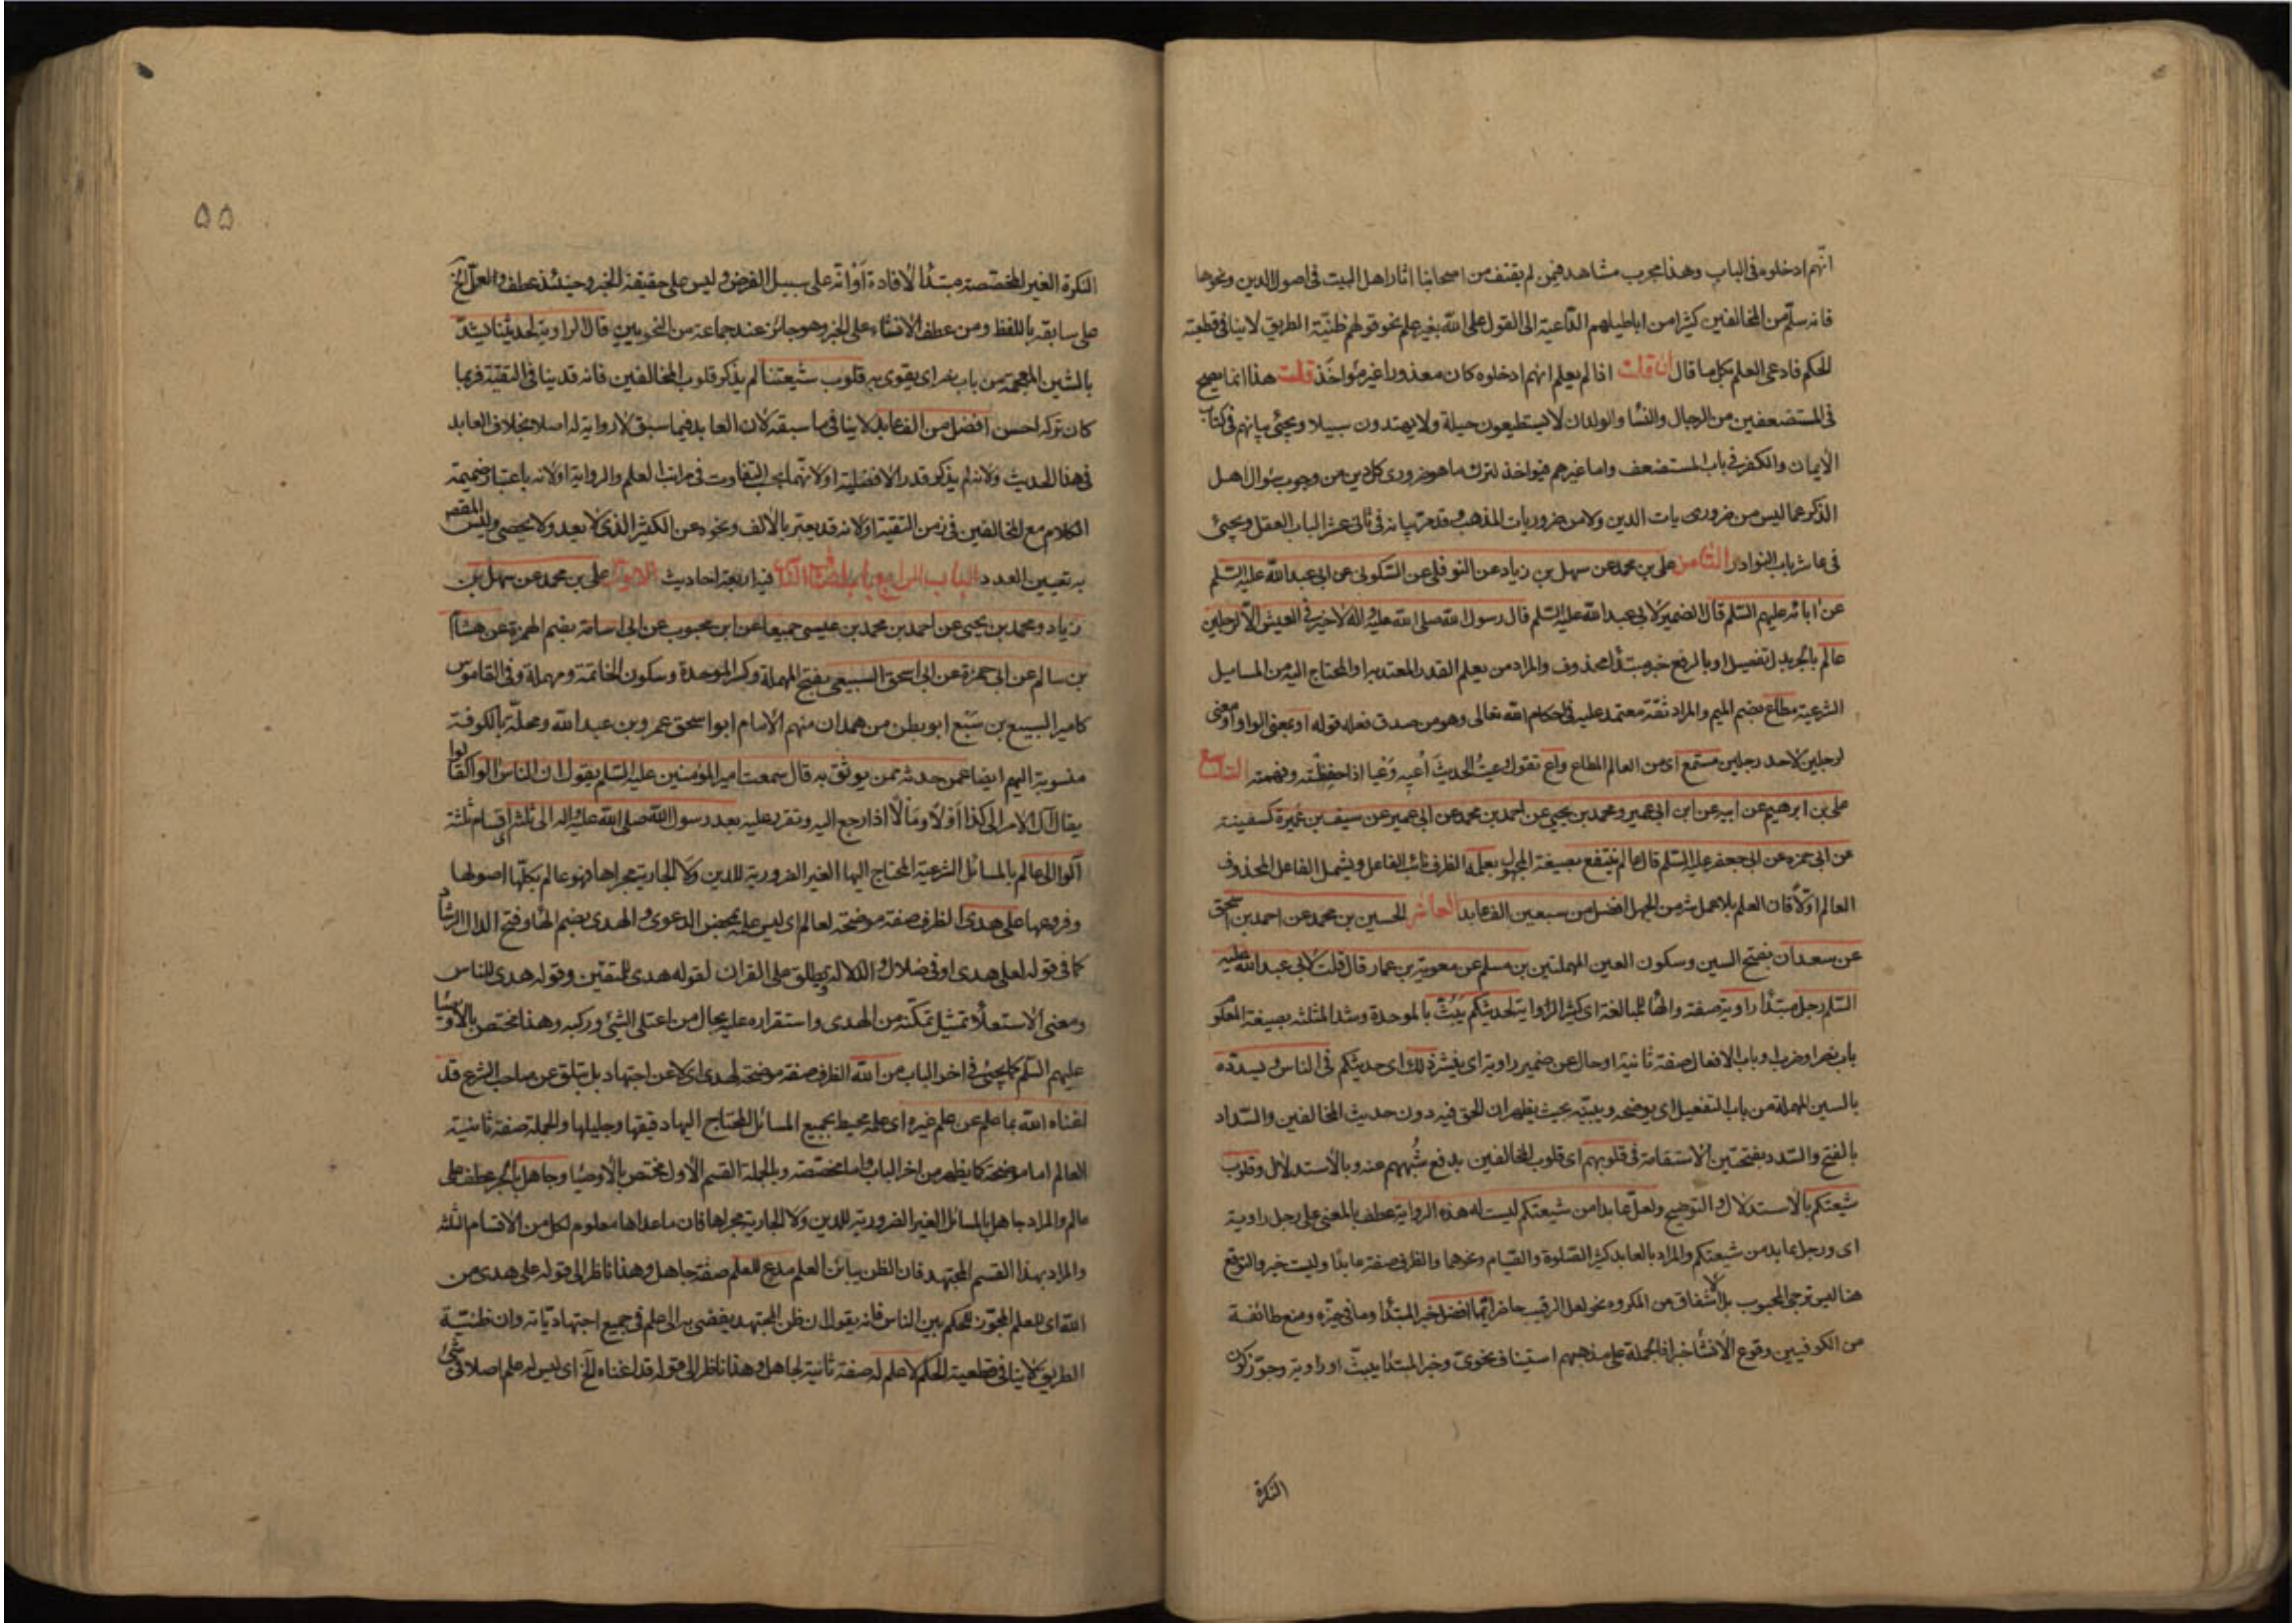 انّهم ادخلوه فى الباب وهذا مجرب مشاهد فيمن لم يقتف من اصحابنا اثار اهل البيت فى اصول الدين ونحوها
فانه سلّم من المخالفين كثيرا من اباطيلهم الدّاعية الى القول على الله بغير علم نحو قولهم ظنّيّة الطريق لا ينافى قطعية
الحكم فادعى العلم بكل ما قال ان قلت اذا لم يعلم انهم ادخلوه كان معذورا غير مؤاخذ قلت هذا انما يصح
فى المستضعفين من الرجال والنسا والولدان لا يستطيعون حيلة ولا يهتدون سبيلا ويجئ بيانهم فى كتاب
الايمان والكفر فى باب المستضعف واما غيرهم فيواخذ لترك ما هو ضرورى كل دين من وجوب سؤال اهل
الذكر عما ليس من ضروريات الدين ولا من ضروريات المذهب وقد مر بيانه فى ثانى عشر الباب العقل ويجئ
فى عاشر باب النوادر الثامن على بن محمد عن سهل بن زياد عن النوفلى عن السّكونى عن ابى عبد الله عليه السّلم
عن ابائه عليهم السّلم قال الضمير لابى عبد الله عليه السّلم قال رسول الله صلى الله عليه واله لا خير فى العيش الّا لرجلين
عالم بالجر بدل تفصيل او بالرفع خبر مبتدأ محذوف والمراد من يعلم القدر المعتد به او المحتاج اليه من المسايل
الشرعية مطاع بضم الميم والمراد ثقة معتمد عليه فى احكام الله تعالى وهو من صدق فعله قوله او بمعنى الواو او معنى
لرجلين لاحد رجلين مستمع اى من العالم المطاع واع تقول وعيت الحديث أعيه وَعْيا اذا حفظته وفهمته التاسع
على بن ابرهيم عن ابيه عن ابن ابى عمير ومحمد بن يحيى عن احمد بن محمد عن ابى عمير عن سيف بن عَميرة كسفينة
عن ابى حمزه عن ابى جعفر عليه السّلم قال عالم ينتفع بصيغة المجهول بعلمه الظرف نائب الفاعل ويشمل الفاعل المحذوف
العالم اوّلا فان العلم بلا عمل شر من الجهل افضل من سبعين الف عابد العاشر الحسين بن محمد عن احمد بن اسحق
عن سعدان بفتح السين وسكون العين المهملتين بن مسلم عن معوية بن عمار قال قلت لابى عبد الله عليه
السّلم رجل مبتدأ راوية صفة والهاء للمبالغة اى كثير الرّواية لحديثكم يَبُثّ بالموحدة وشد المثلثه بصيغة المعلو
باب نصر وضرب او باب الافعال صفة ثانية او حال عن ضمير راوية اى ينشر ذلك اى حديثكم فى الناس ويسدّده
بالسين المهملة من باب التفعيل اى يوضحه ويبيّنه بحيث يظهر ان الحق فيه دون حديث المخالفين والسّداد
بالفتح والسّدد بفتحتين الاستقامة فى قلوبهم اى قلوب المخالفين بدفع شُبههم عنه وبالاستدلال وقلوب
شيعتكم بالاستدلال والتوضيح ولعلّ عابدا من شيعتكم ليست له هذه الرواية عطف بالمعنى على رجل راوية
اى ورجل عابد من شيعتكم والمراد بالعابد كثير الصّلوة والصّيام ونحوهما والظرف صفة عابدًا وليست خبر والتوقع
هنا ليس ترجى المحبوب بل الاشفاق من المكروه نحو لعل الرقيب حاضر ايّهما افضل خبر المبتدأ وما فى حيّزه ومنع طائفة
من الكوفيين وقوع الانشا خبرا فالجملة على مذهبهم استيناف نحوىّ وخبر المبتدأ يبثّ او راوية وجوّز كون
النكرة
۵۵
النكرة الغير المخصّصة مبتدأ لافادة اوْ انّه على سبيل الفرض وليس على حقيقة الخبر وحينئذ عطف ولعلّ الخ
على سابقه باللفظ ومن عطف الانشاء على الخبر وهو جائز عند جماعة من النحويين قال الراوية لحديثنا يشدّ
بالشين المعجمة من باب نصر اى يقوى به قلوب شيعتنا لم يذكر قلوب المخالفين فانه قد ينافى التقيّة فربما
كان تركه احسن افضل من الف عابد لا ينافى ما سبقه لان العابد فيما سبق لا رواية له اصلا بخلاف العابد
فى هذا الحديث ولانه لم يذكر قدر الافضلية او لانهما بحسب التفاوت فى مراتب العلم والرواية او لانه باعتبار ضميمة
الكلام مع المخالفين فى زمن التقية او لانه قد يعبّر بالالف ونحوه عن الكثير الذى لا يعد ولا يحصى وليس المقصو
به تعيين العدد الباب الرابع باب اصناف الناس فيه اربعة احاديث الاول على بن محمد عن سهل بن
زياد ومحمد بن يحيى عن احمد بن محمد بن عيسى جميعا عن ابن محبوب عن ابى اسامة بضم الهمزة عن هشام
بن سالم عن ابى حمزة عن ابى اسحق السبيعى بفتح المهملة وكسر الموحدة وسكون الخاتمة ومهملة وفى القاموس
كامير السبيع بن سَبُع ابو بطن من همدان منهم الامام ابو اسحق عمرو بن عبد الله ومحلّة بالكوفة
منسوبة اليهم ايضا عمن حدثه ممن يوثق به قال سمعت امير المؤمنين عليه السّلم يقول ان الناس الوا كقالوا
يقال آل الامر الى كذا اَوْلًا ومَآلًا اذا رجع اليه وتقرر عليه بعد رسول الله صلى الله عليه واله الى ثلثة اى اقسام ثلثة
آلوا الى عالم بالمسائل الشرعية المحتاج اليها الغير الضرورية للدين ولا الجارية مجراها فهو عالم بكلّها اصولها
وفروعها على هدى الظرف صفة موضحة لعالم اى ليس علمه بمحض الدعوى والهدى بضم الهاء وفتح الدال الرشاد
كما فى قوله لعلى هدى او فى ضلال والدلالة ويطلق على القران لقوله هدى للمتقين وقوله هدى للناس
ومعنى الاستعلا تمثيل تمكّنه من الهدى واستقراره عليه بحال من اعتلى الشئ وركبه وهذا مختص بالاوصيا
عليهم السّلم كما يجئ فى اخر الباب من الله الظرف صفة موضحة لهدى اى لا عن اجتهاد بل بتلق عن صاحب الشرع قد
اغناه الله بما علم عن علم غيره اى علمه محيط بجميع المسائل المحتاج اليها دقيقها وجليلها والجملة صفة ثانية
العالم اما موضحة كما يظهر من اخر الباب واما مخصّصة وبالجملة القسم الاول مختص بالاوصيا وجاهل بالجر عطف على
عالم والمراد جاهل بالمسائل الغير الضرورية للدين ولا الجارية مجراها فان ماعداها معلوم لكل من الاقسام الثلثه
والمراد بهذا القسم المجتهد فان الظن يباين العلم مدع للعلم صفة جاهل وهذا ناظر الى قوله على هدى من
الله اى للعلم المجوّز للحكم بين الناس فانه يقول ان ظن المجتهد يفضى به الى علم فى جميع اجتهاديّاته وان ظنّيّة
الطريق لا ينافى قطعية الحكم لا علم له صفة ثانية لجاهل وهذا ناظر الى قوله قد اغناه الخ اى ليس له علم اصلا فى شئ